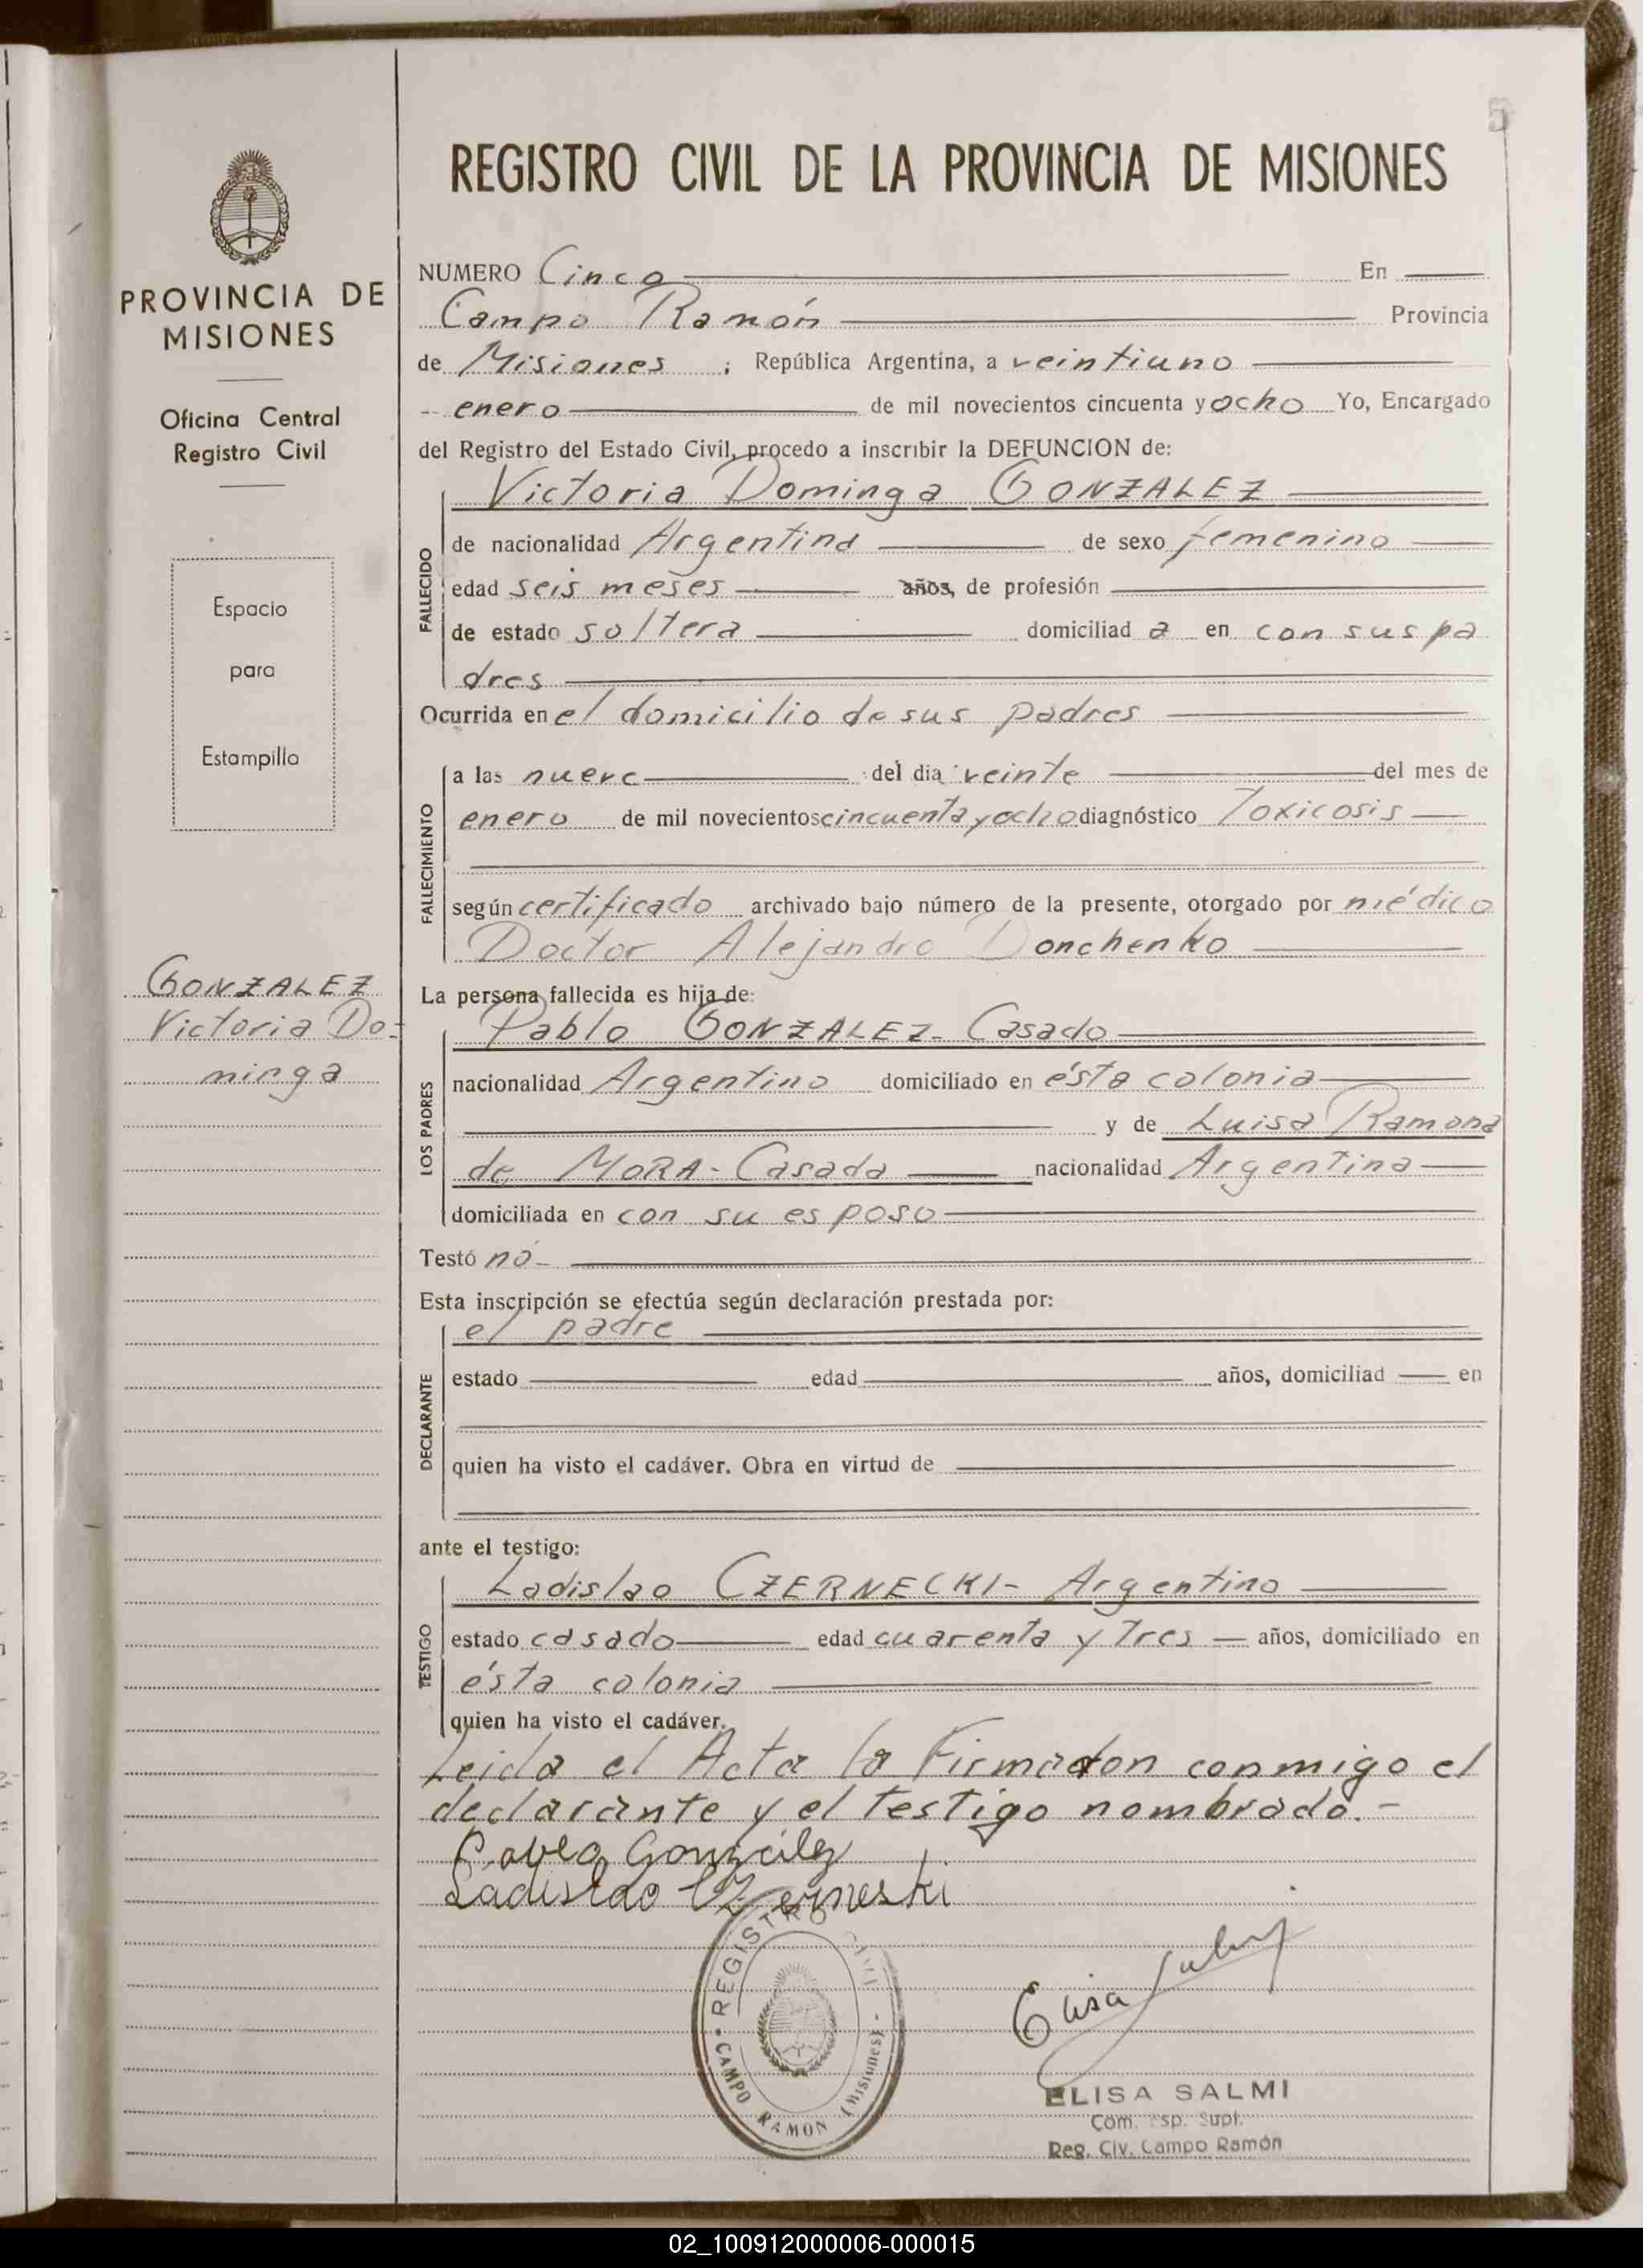 5
REGISTRO CIVIL DE LA PROVINCIA DE MISIONES
PROVINCIA DE
MISIONES
Oficina Central
Registro Civil
Espacio
para
Estampilla
GONZALEZ
Victoria Do-
minga
NUMERO Cinco En
Campo Ramón Provincia
de Misiones ; República Argentina, a veintiuno
enero de mil novecientos cincuenta y ocho Yo, Encargado
del Registro del Estado Civil, procedo a inscribir la DEFUNCION de:
FALLECIDO
Victoria Dominga GONZALEZ
de nacionalidad Argentina de sexo femenino
edad seis meses años, de profesión
de estado soltera domiciliad a en con sus pa
dres
Ocurrida en el domicilio de sus padres
FALLECIMIENTO
a las nueve del dia veinte del mes de
enero de mil novecientos cincuenta y ocho diagnóstico Toxicosis
según certificado archivado bajo número de la presente, otorgado por médico
Doctor Alejandro Donchenko
La persona fallecida es hija de:
LOS PADRES
Pablo GONZALEZ- Casado
nacionalidad Argentino domiciliado en ésta colonia
y de Luisa Ramona
de MORA- Casada nacionalidad Argentina
domiciliada en con su esposo
Testó no-
Esta inscripción se efectúa según declaración prestada por:
DECLARANTE
el padre
estado edad años, domiciliad en
quien ha visto el cadáver. Obra en virtud de
ante el testigo:
TESTIGO
Ladislao CZERNECKI- Argentino
estado casado edad cuarenta y tres años, domiciliado en
ésta colonia
quien ha visto el cadáver.
Leida el Acta la Firmadon conmigo el
declarante y el testigo nombrado.-
Pablo González
Ladislao Czerneski
REGISTRO CIVIL
CAMPO RAMON (Misiones)
Elisa Salmi
ELISA SALMI
Com. Esp. Supl.
Reg. Civ. Campo Ramón
02_100912000006-000015